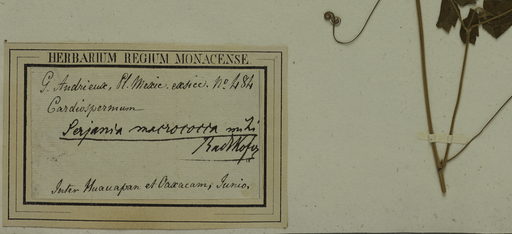 HERBARIUM REGIUM MONACENSE
G. Andrieux, Pl. Mexic. exsicc. No 484
Cardiospermum
Serjania macrococca mihi
Radlkofer
Inter Huauapan et Oaxacam, Junio.